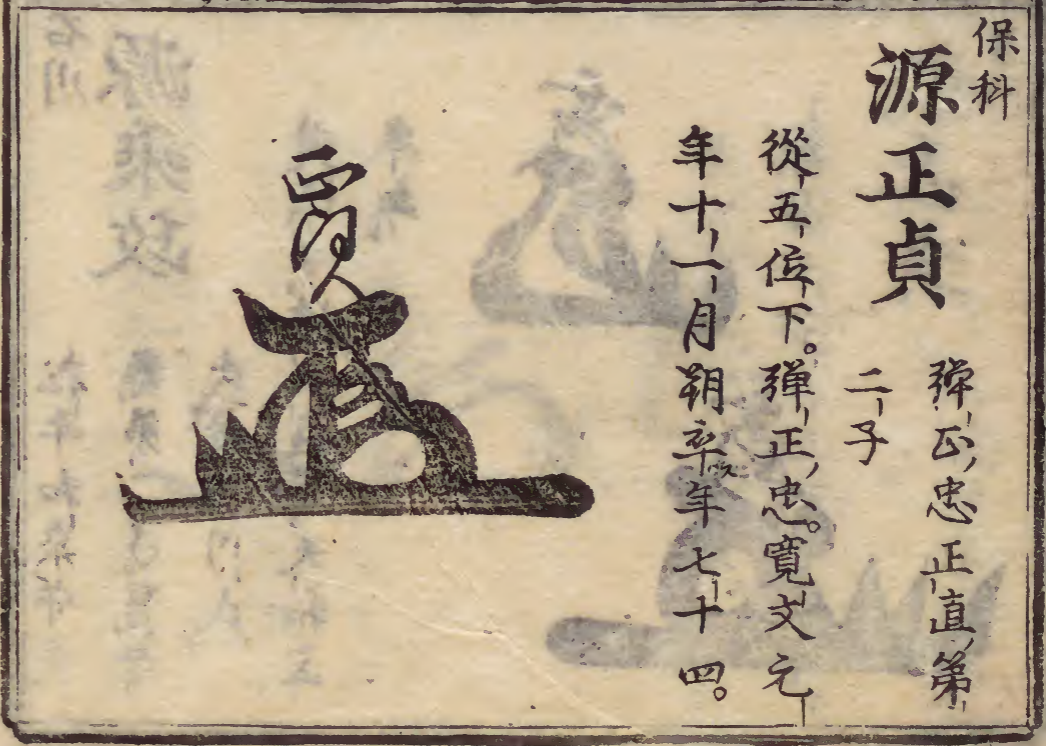 保科
源正貞
弾正忠正直第
二子
從五位下。弾正忠。寛文元
年十一月朔卒年七十四。
正貞